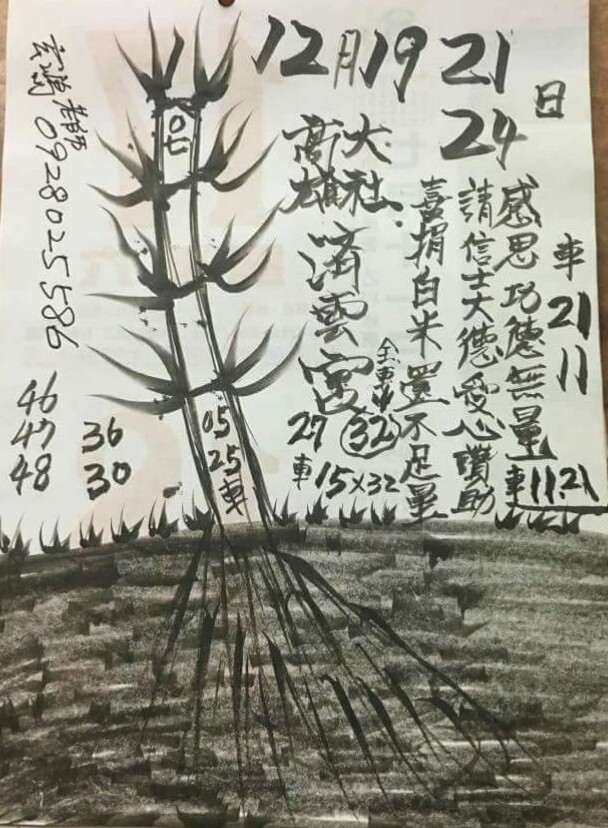 12月19 21
24
日
車
21
11
感恩功德無量
車11.21
請信士大德愛心讚助
喜捐白米還不足量
大社
高雄
濟雲宮
全車中
27 32
車15×32
07
05
25
車
0928025586
46
47
48
36
30